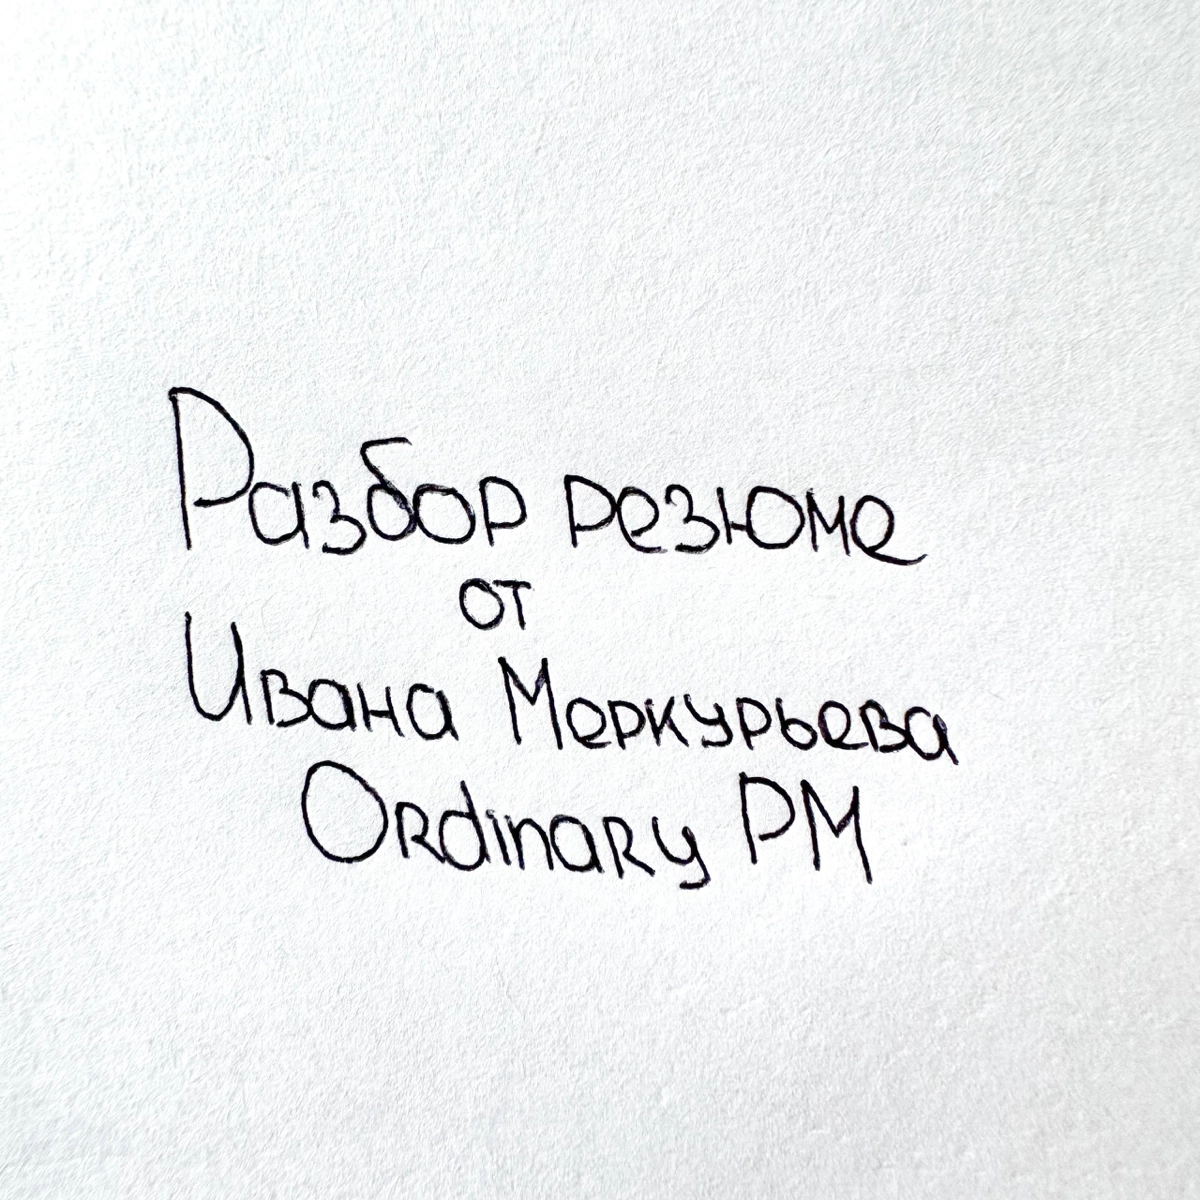 Разбор резюме
от
Ивана Меркурьева
Ordinary PM